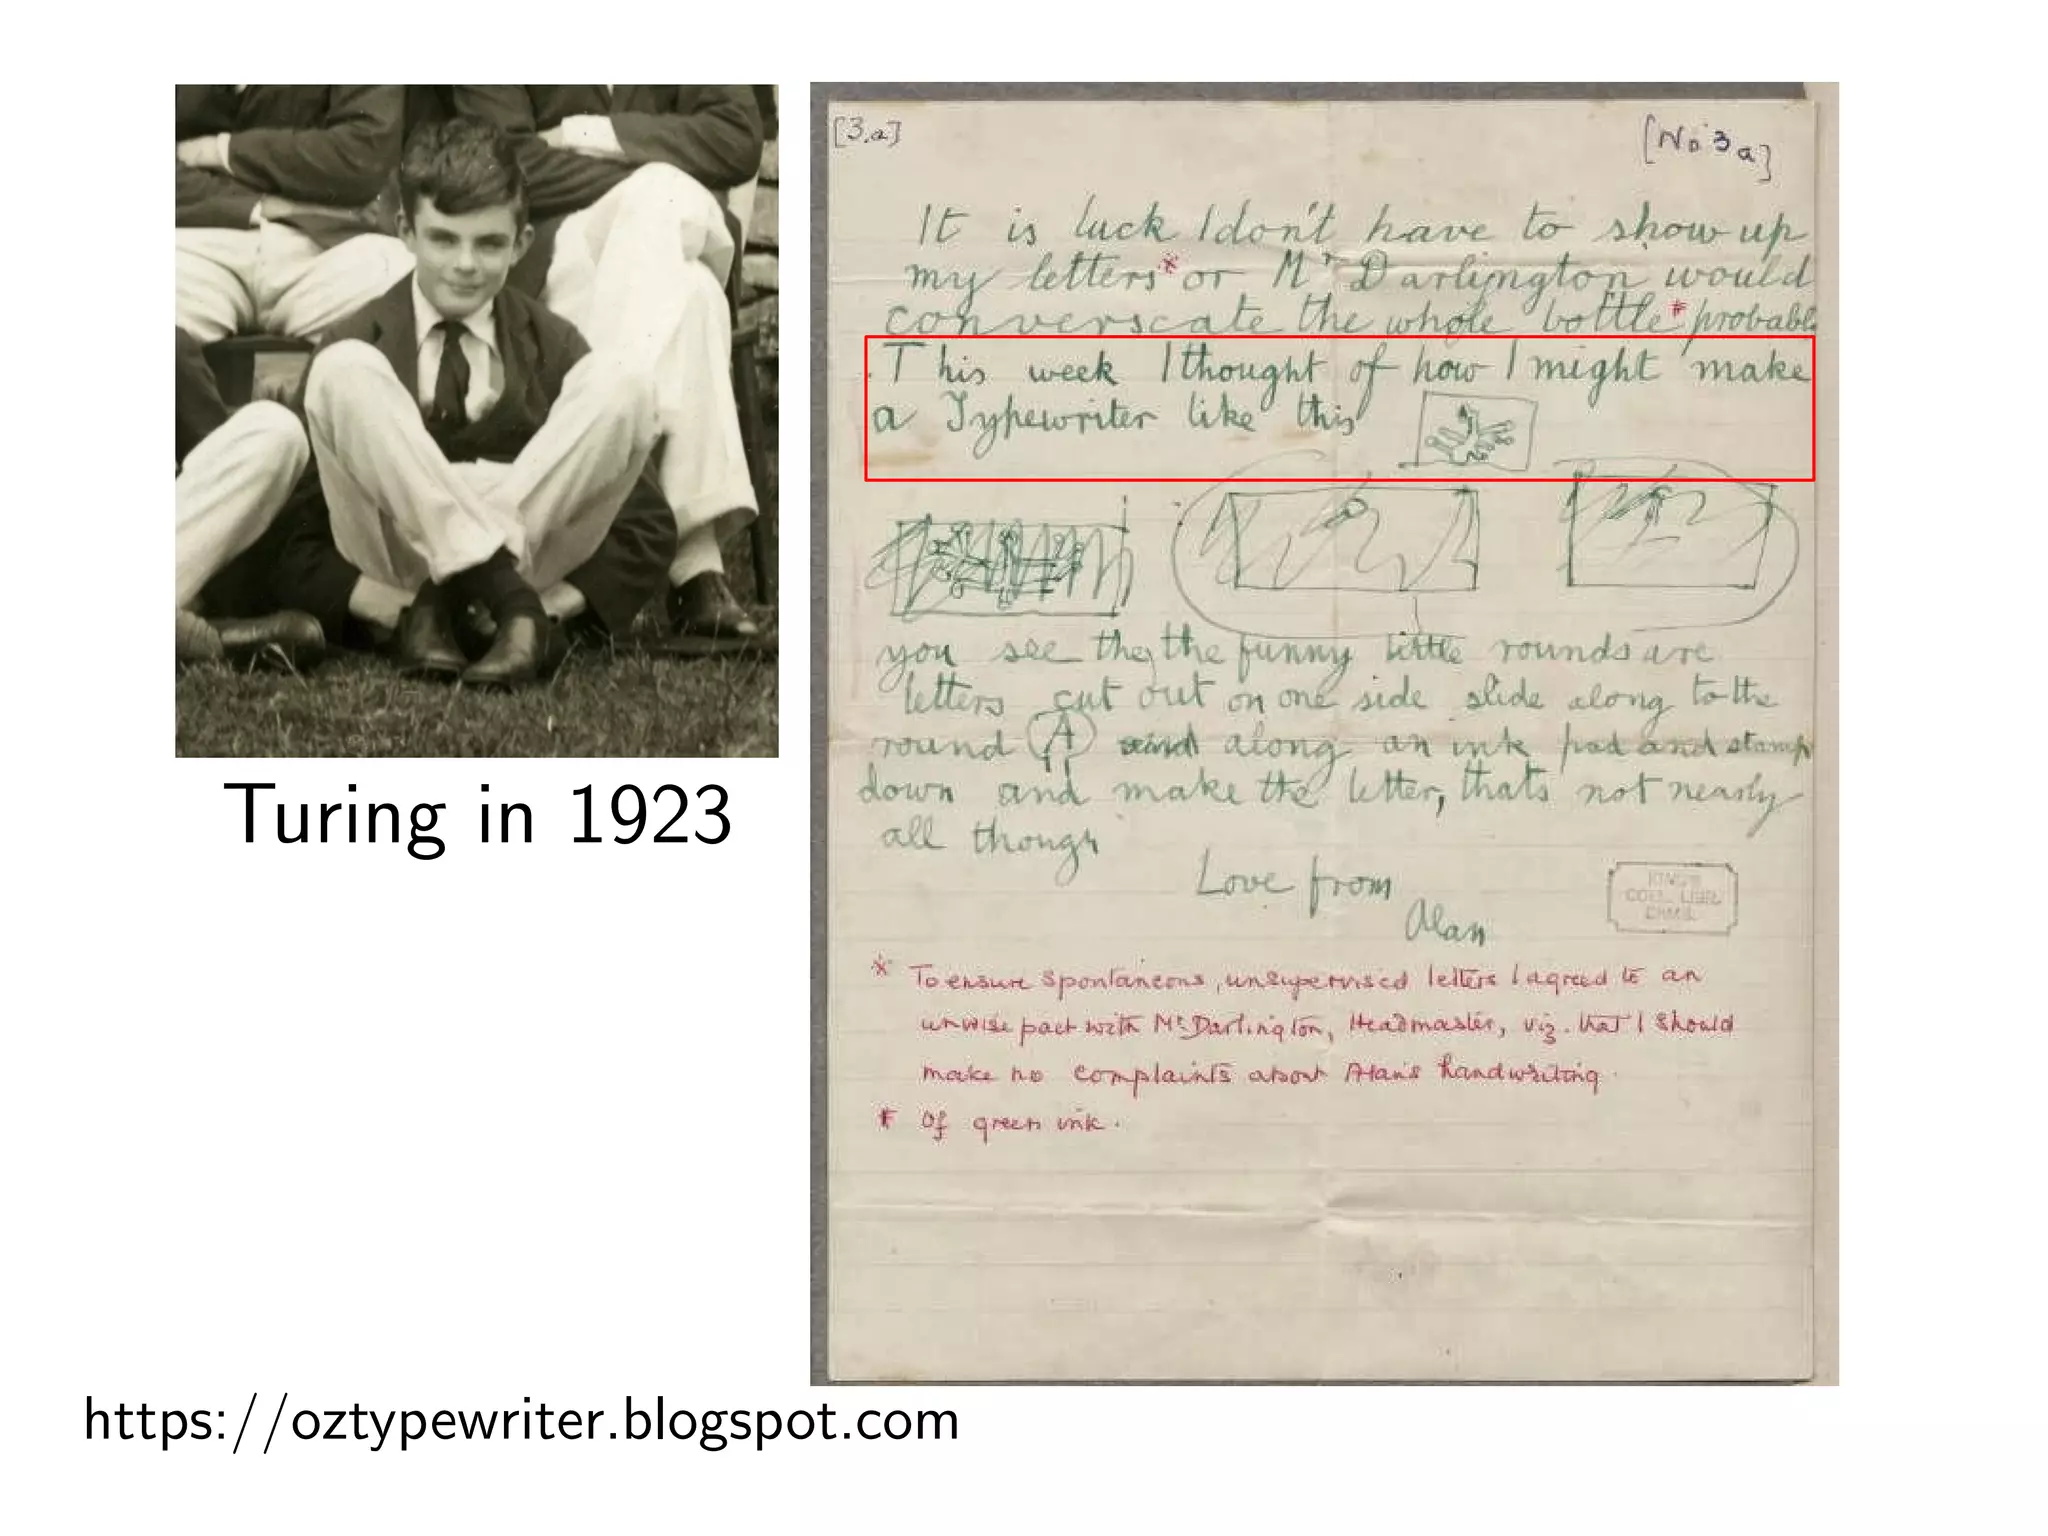 [3.a]
[No 3a]
It is luck I don't have to show up
my letters* or Mr Darlington would
converscate the whole bottle* probabl
This week I thought of how I might make
a Typewriter like this
you see the, the funny little rounds are
letters cut out on one side slide along to the
round A along an ink pad and stamp
down and make the letter, thats not nearly
all though
Love from
Alan
KING'S
COLL. LIBR.
CAMB.
* To ensure spontaneous, unsupervised letters I agreed to an
unwise pact with Mr Darlington, Headmaster, viz. that I should
make no complaints about Alan's handwriting.
* Of green ink.
Turing in 1923
https://oztypewriter.blogspot.com